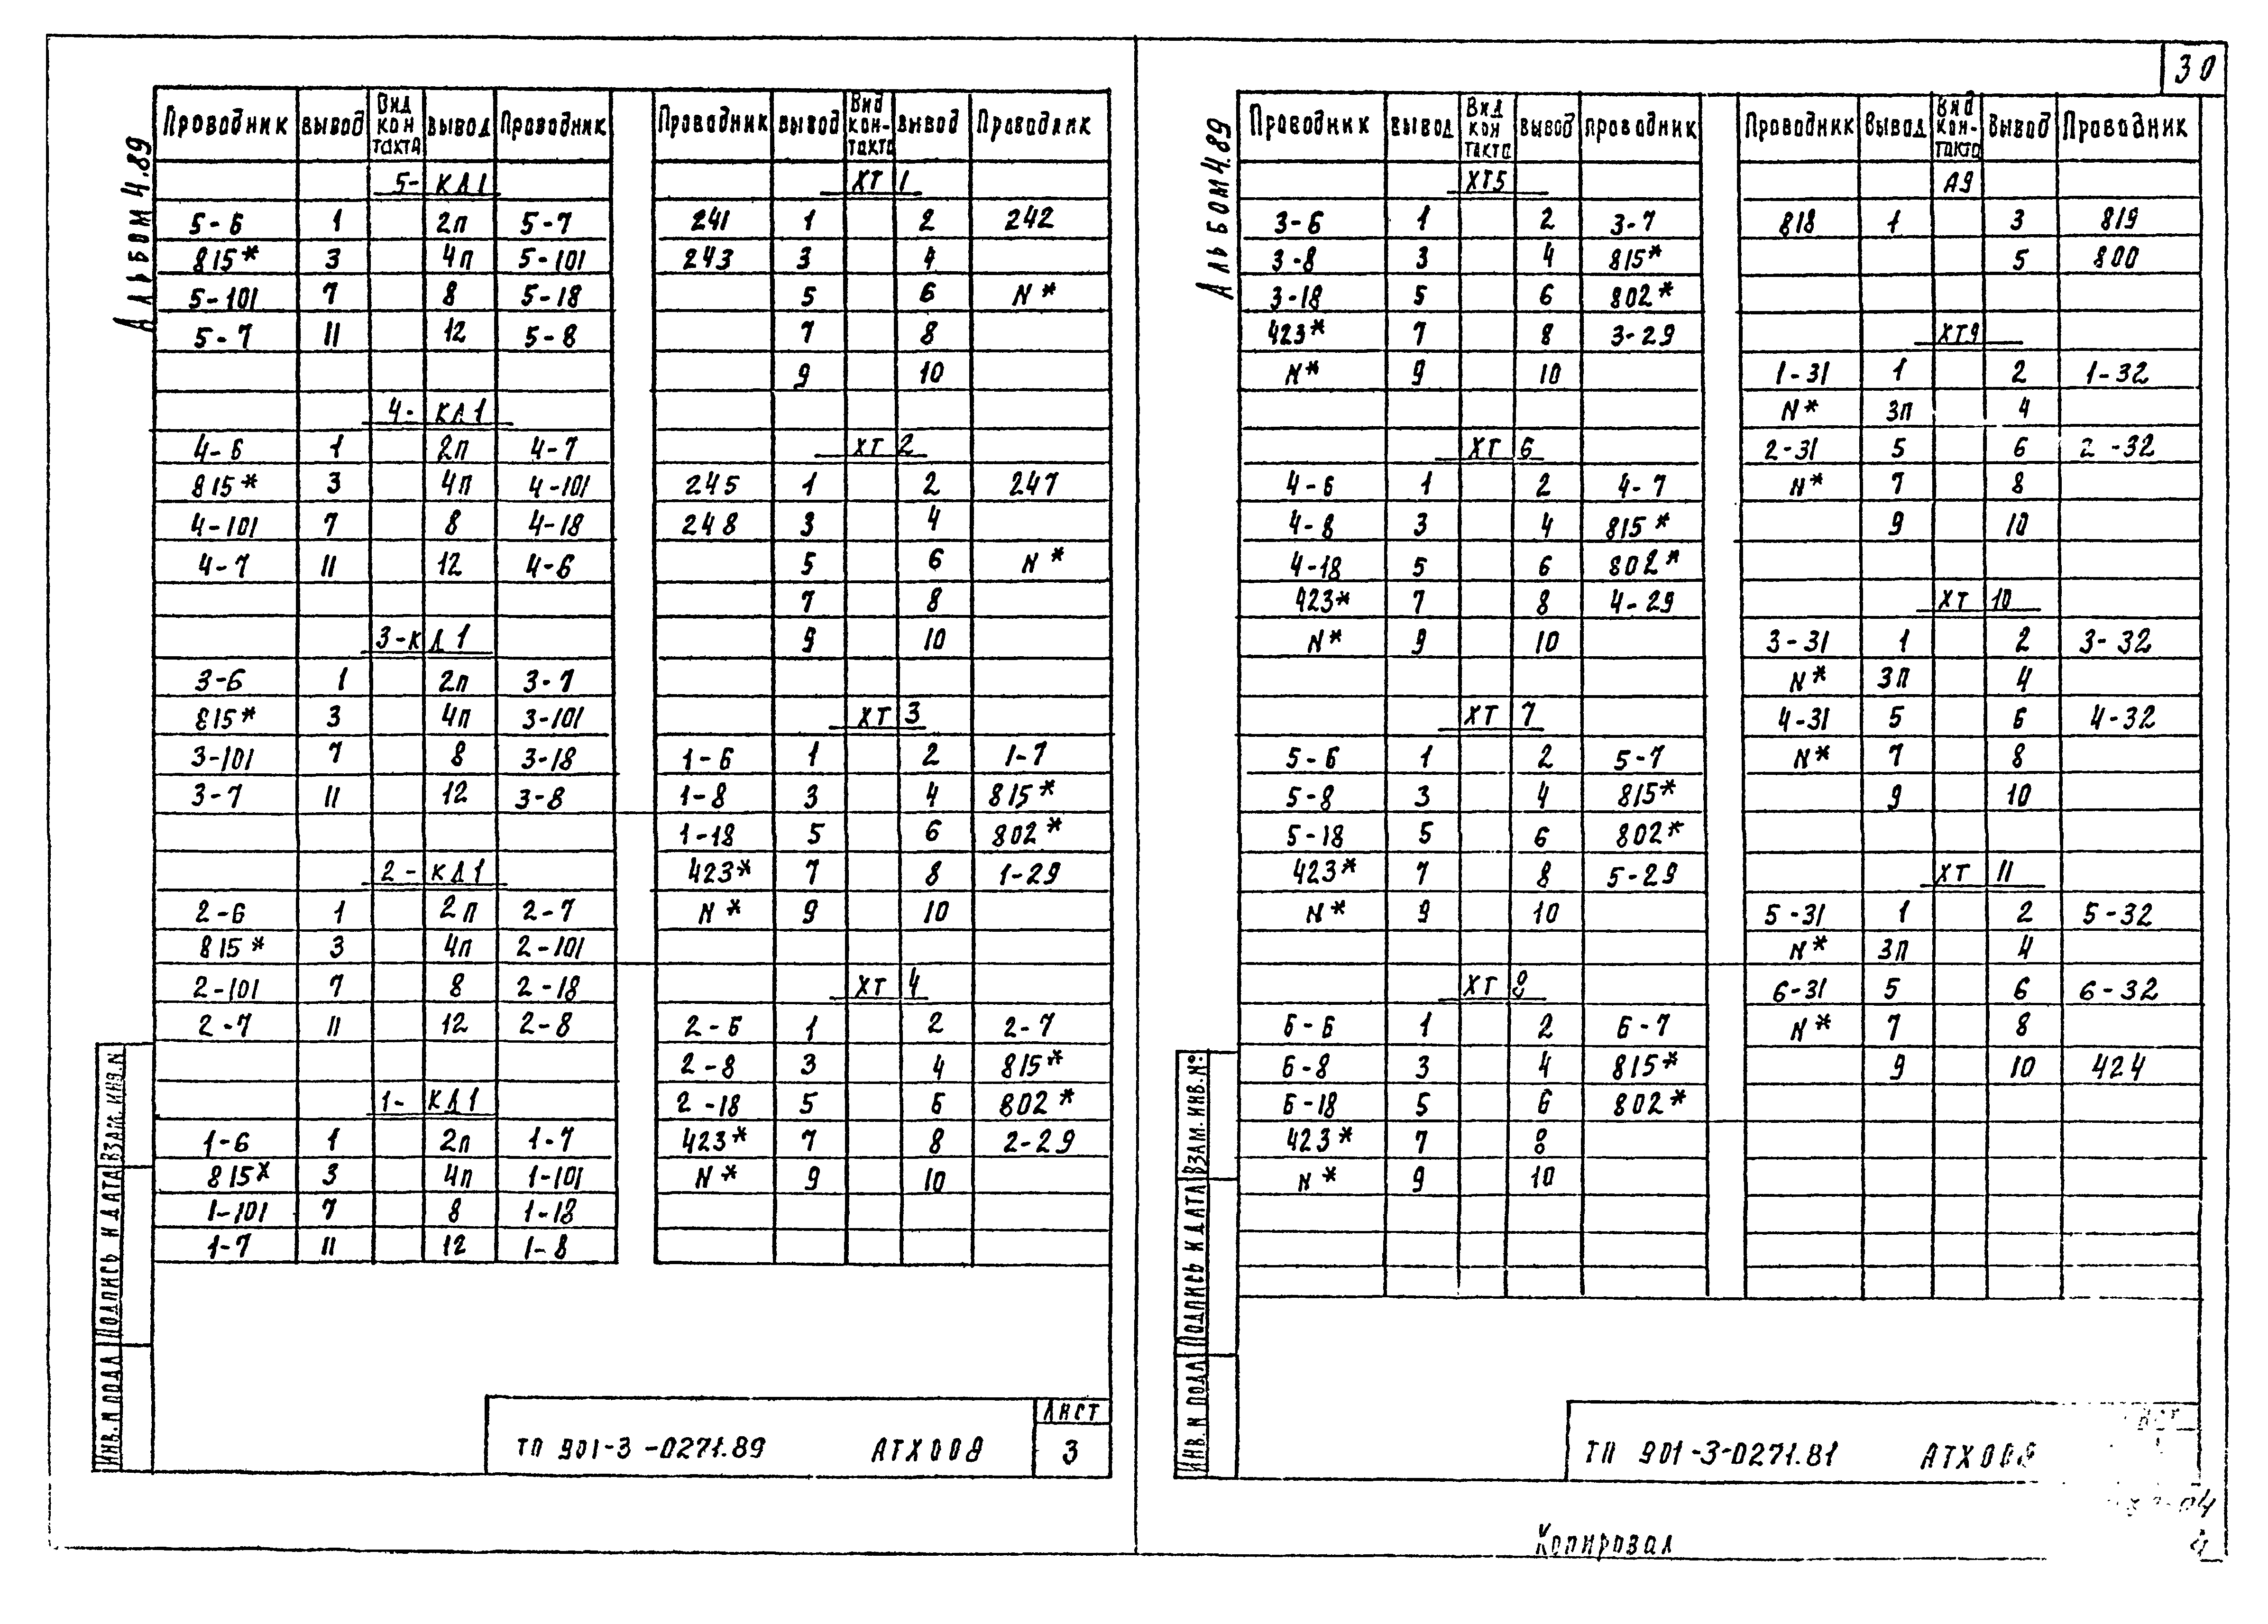 30
Альбом 4.89
Проводник вывод Вид кон такта вывод Проводник
5- КЛ1
5-6 1 2п 5-7
815* 3 4п 5-101
5-101 7 8 5-18
5-7 11 12 5-8
4- КЛ1
4-6 1 2п 4-7
815* 3 4п 4-101
4-101 7 8 4-18
4-7 11 12 4-6
3-КЛ1
3-6 1 2п 3-7
815* 3 4п 3-101
3-101 7 8 3-18
3-7 11 12 3-8
2- КЛ1
2-6 1 2п 2-7
815* 3 4п 2-101
2-101 7 8 2-18
2-7 11 12 2-8
1- КЛ1
1-6 1 2п 1-7
815* 3 4п 1-101
1-101 7 8 1-18
1-7 11 12 1-8
Проводник вывод Вид кон-такта вывод Проводник
ХТ 1
241 1 2 242
243 3 4
5 6 N*
7 8
9 10
ХТ 2
245 1 2 247
248 3 4
5 6 N*
7 8
9 10
ХТ 3
1-6 1 2 1-7
1-8 3 4 815*
1-18 5 6 802*
423* 7 8 1-29
N* 9 10
ХТ 4
2-6 1 2 2-7
2-8 3 4 815*
2-18 5 6 802*
423* 7 8 2-29
N* 9 10
ИНВ.N ПОДЛ ПОДПИСЬ И ДАТА ВЗАМ. ИНВ.N
ТП 901-3-0271.89 АТХ008
ЛИСТ
3
Альбом 4.89
Проводник вывод Вид кон такта вывод проводник
ХТ5
3-6 1 2 3-7
3-8 3 4 815*
3-18 5 6 802*
423* 7 8 3-29
N* 9 10
ХТ 6
4-6 1 2 4-7
4-8 3 4 815*
4-18 5 6 802*
423* 7 8 4-29
N* 9 10
ХТ 7
5-6 1 2 5-7
5-8 3 4 815*
5-18 5 6 802*
423* 7 8 5-29
N* 9 10
ХТ 8
6-6 1 2 6-7
6-8 3 4 815*
6-18 5 6 802*
423* 7 8
N* 9 10
Проводник Вывод Вид кон-такта Вывод Проводник
А9
818 1 3 819
5 800
ХТ9
1-31 1 2 1-32
N* 3п 4
2-31 5 6 2-32
N* 7 8
9 10
ХТ 10
3-31 1 2 3-32
N* 3п 4
4-31 5 6 4-32
N* 7 8
9 10
ХТ 11
5-31 1 2 5-32
N* 3п 4
6-31 5 6 6-32
N* 7 8
9 10 424
ИНВ.N ПОДЛ ПОДПИСЬ И ДАТА ВЗАМ. ИНВ.№
ТП 901-3-0271.81 АТХ008
Копировал